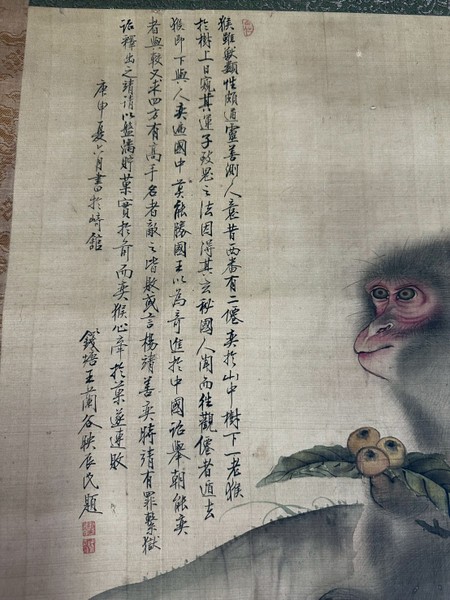 猴雖獸類性頗通靈善測人意昔西番有二僊奕於山中樹下一老猴
於樹上日窺其運子致思之法因得其玄秘國人聞而往觀僊者遁去
猴即下與人奕遍國中莫能勝國王以為奇進於中國詔舉朝能奕
者與較又求四方有高手名者敵之皆敗或言楊靖善奕時靖有罪繫獄
詔釋出之靖請以盤滿貯菓實於前而奕猴心牽於菓遂連敗
庚申夏六月書於崎館
錢塘王蘭谷映辰氏題